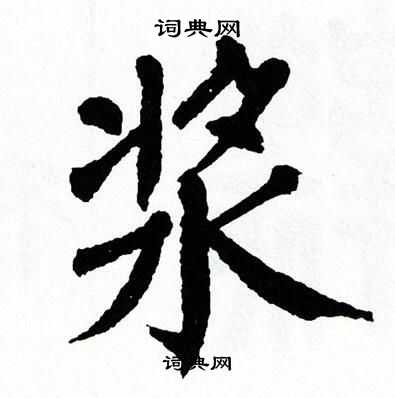 词典网
桨
词典网